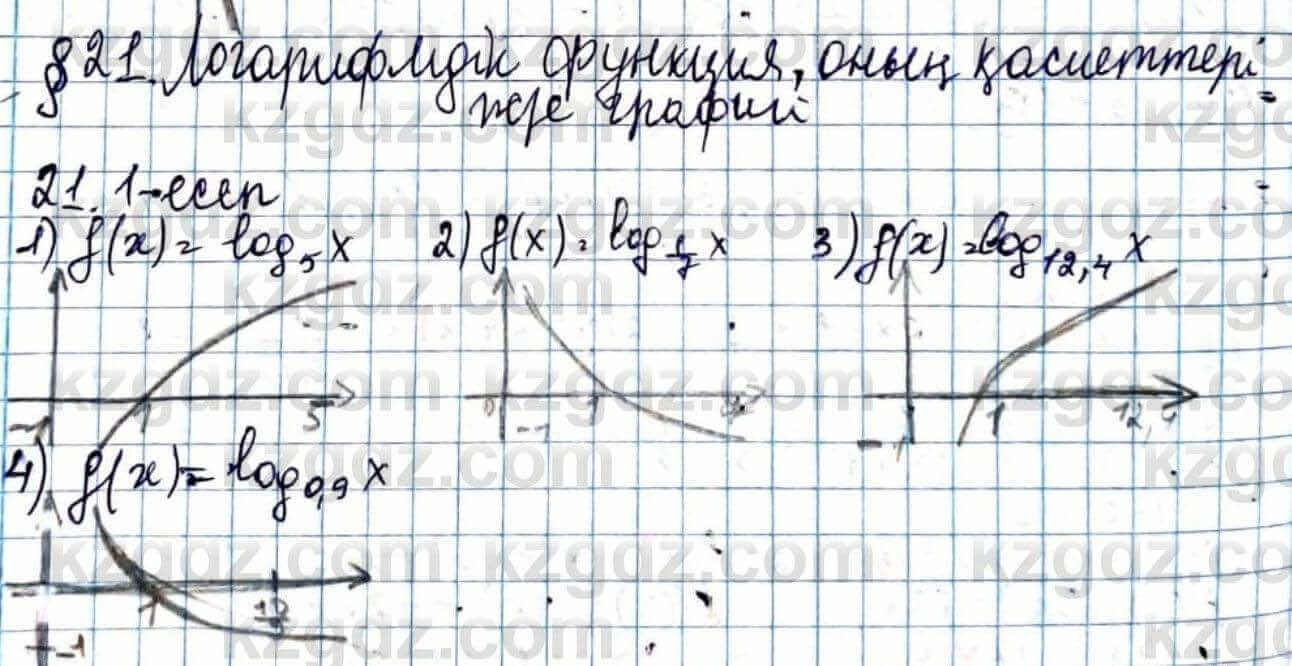 § 21. Логарифмдік функция, оның қасиеттері
және графигі
21. 1-есеп
1) f(x) = log₅ x 2) f(x) = log_{1/7} x 3) f(x) = log_{12,4} x
1 5
-1
0 1
-1
1 12,4
-1
4) f(x) = log_{0,9} x
1
-1
kzgdz.com